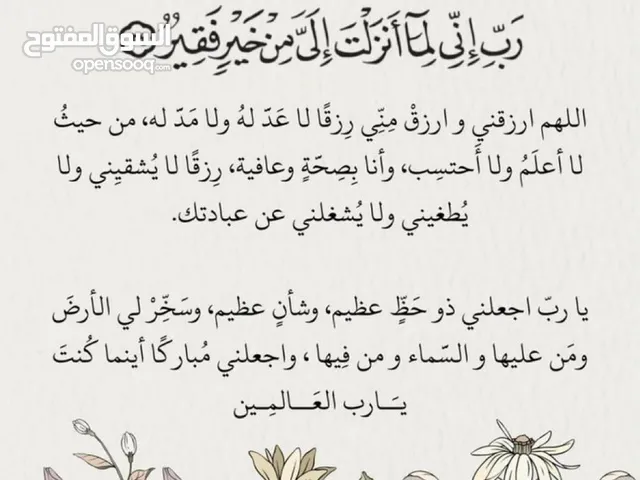 السوق المفتوح
opensooq.com
رَبِّ إِنِّي لِمَا أَنزَلْتَ إِلَىَّ مِنْ خَيْرٍ فَقِيرٌ
اللهم ارزقني و ارزقْ مِنِّي رِزقًا لا عَدّ لهُ ولا مَدّ له، من حيثُ
لا أعلَمُ ولا أَحتسِب، وأنا بِصِحّةٍ وعافية، رِزقًا لا يُشقيِني ولا
يُطغيني ولا يُشغلني عن عبادتك.
يا ربّ اجعلني ذو حَظٍّ عظيم، وشأنٍ عظيم، وسَخِّرْ لي الأرضَ
ومَن عليها و السّماء و من فِيها ، واجعلني مُباركًا أينما كُنتَ
يَــارب العَـــالمِـين